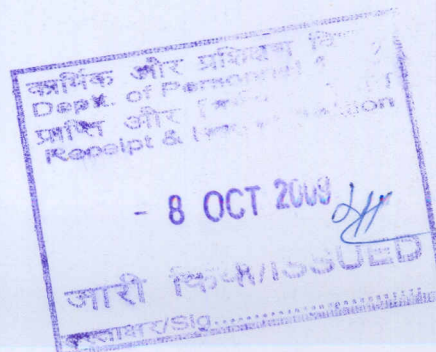 कार्मिक और प्रशिक्षण
Deptt. of Personnel &
प्राप्ति और
Receipt &
- 8 OCT 2009
जारी किया/ISSUED
हस्ताक्षर/Sig..............................